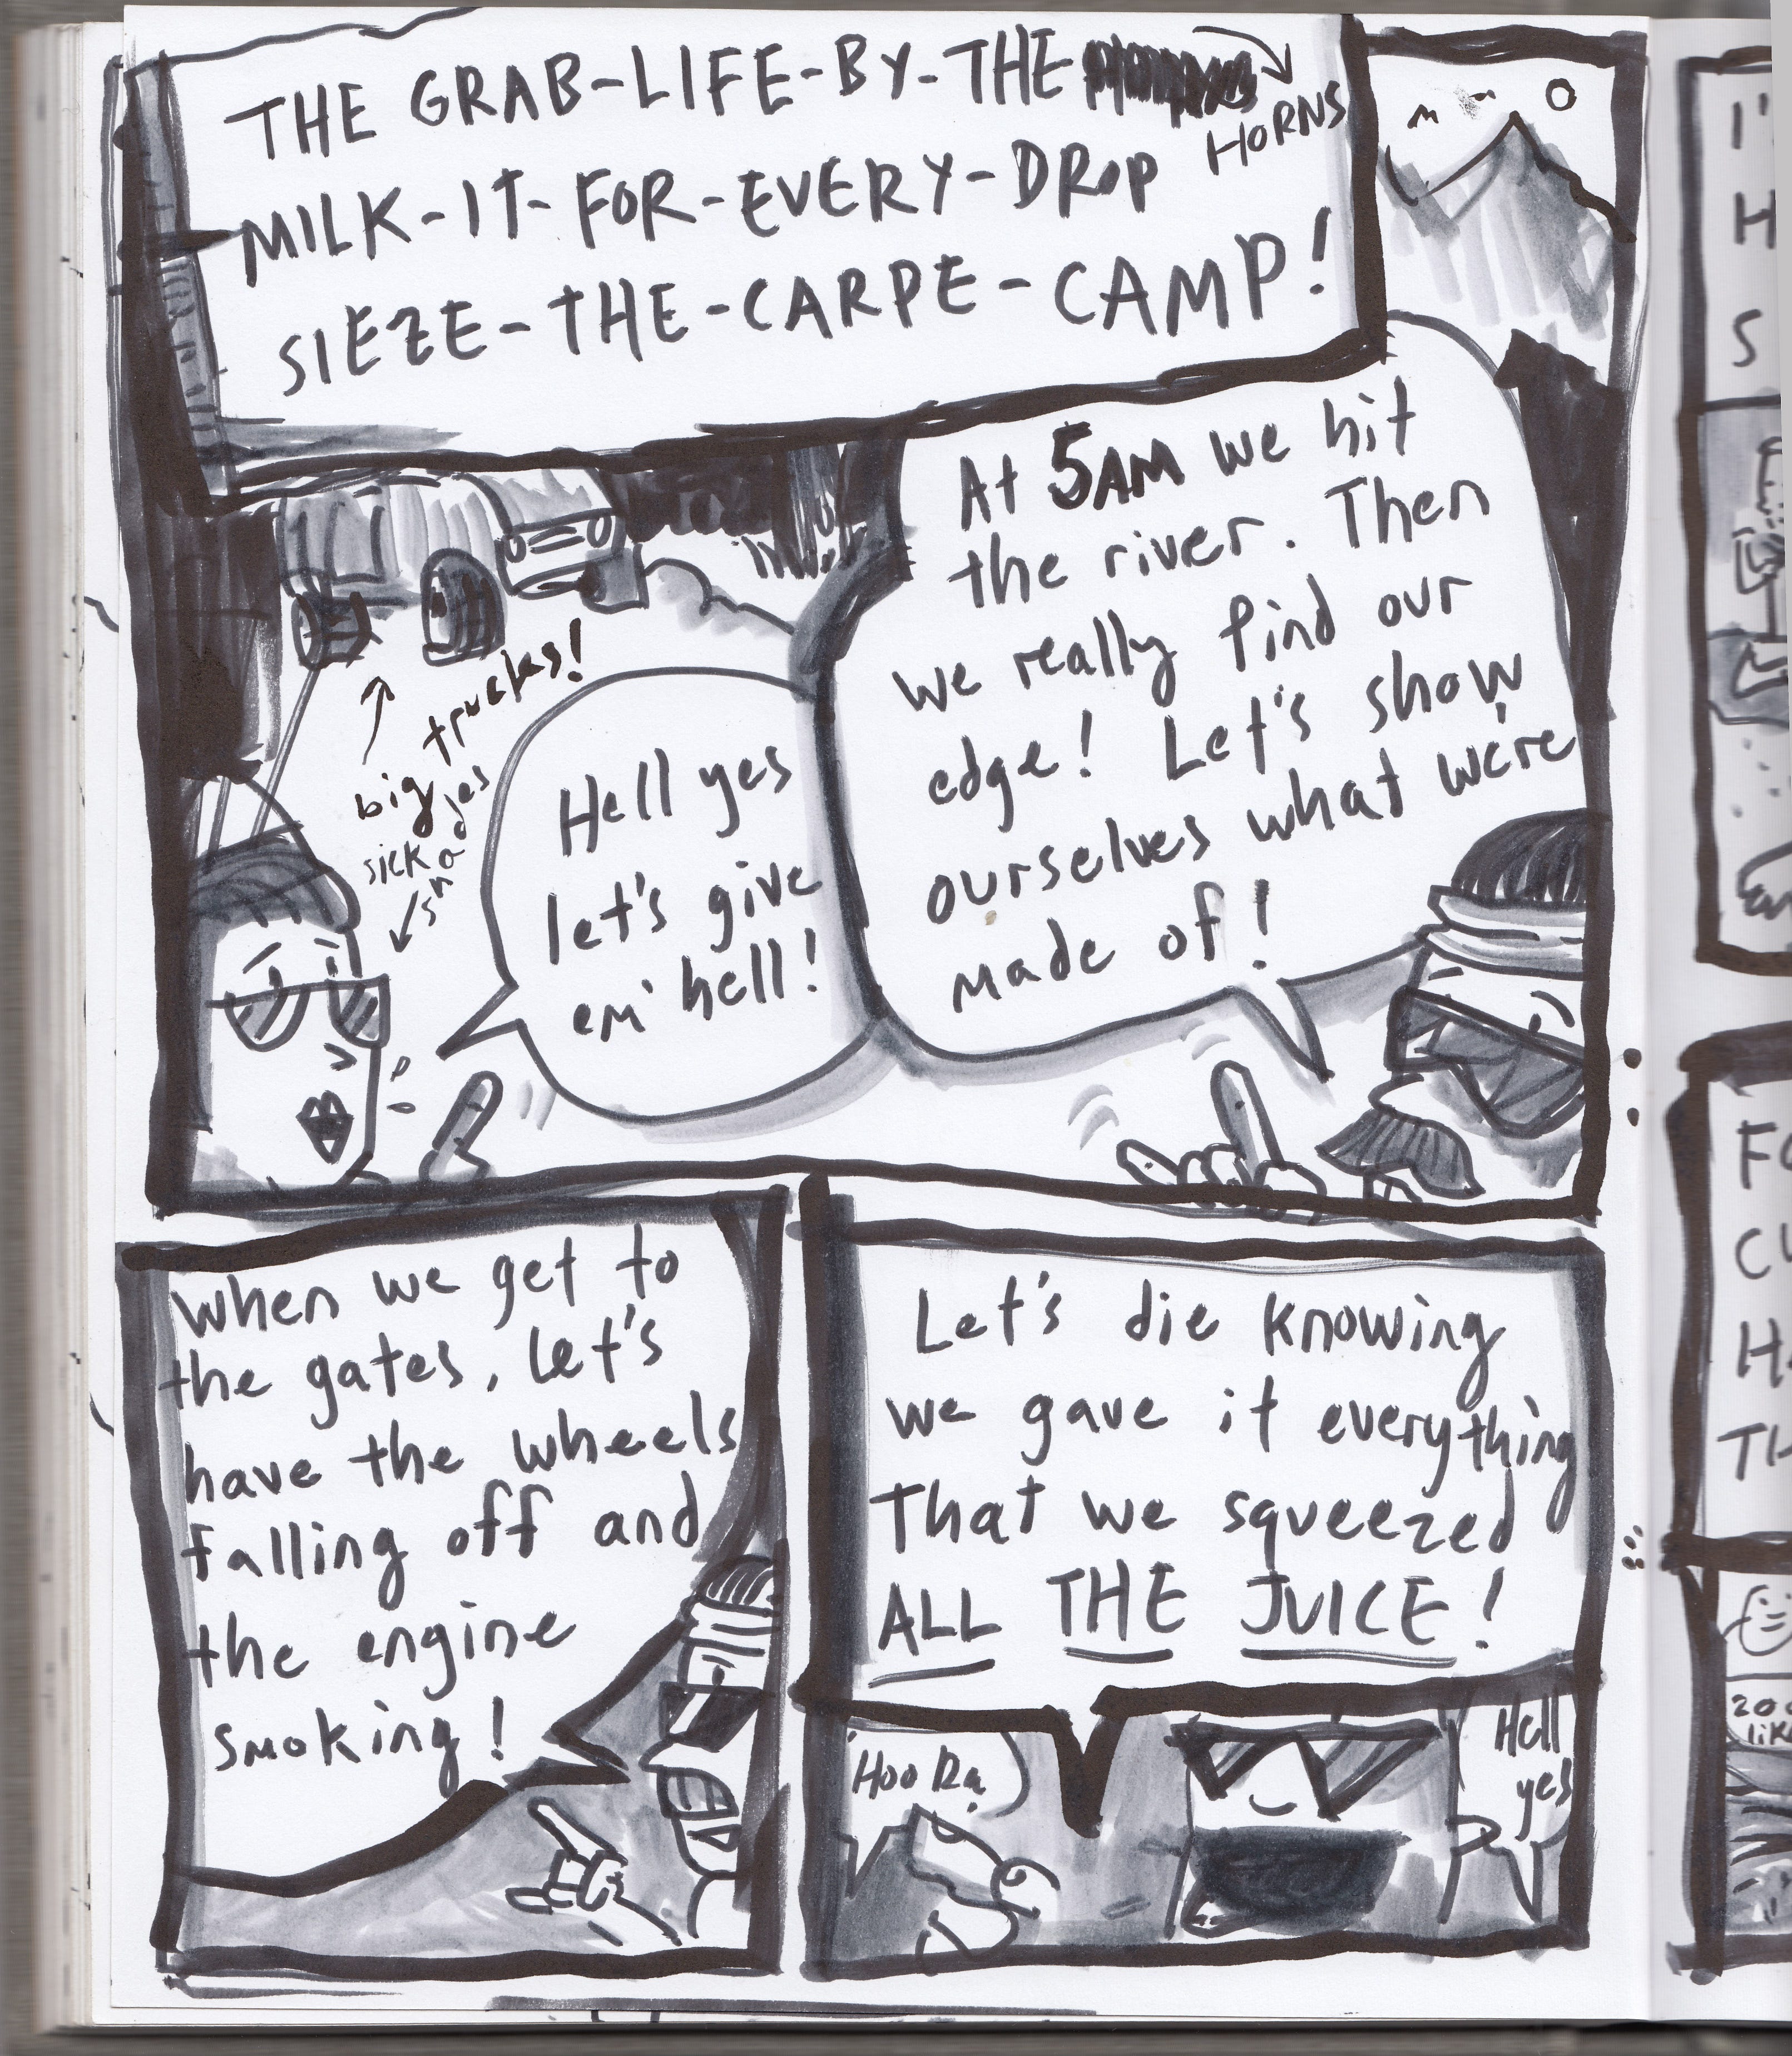 THE GRAB-LIFE-BY-THE
HORNS
MILK-IT-FOR-EVERY-DROP
SIEZE-THE-CARPE-CAMP!
At 5AM we hit
the river. Then
we really find our
edge! Let's show
ourselves what we're
made of!
big trucks!
sick shades
Hell yes
let's give
em' hell!
When we get to
the gates, let's
have the wheels
falling off and
the engine
smoking!
Let's die knowing
we gave it everything
That we squeezed
ALL THE JUICE!
Hoo Ra!
Hell
yes
I'
H
S
F
C
H
TH
20
lik